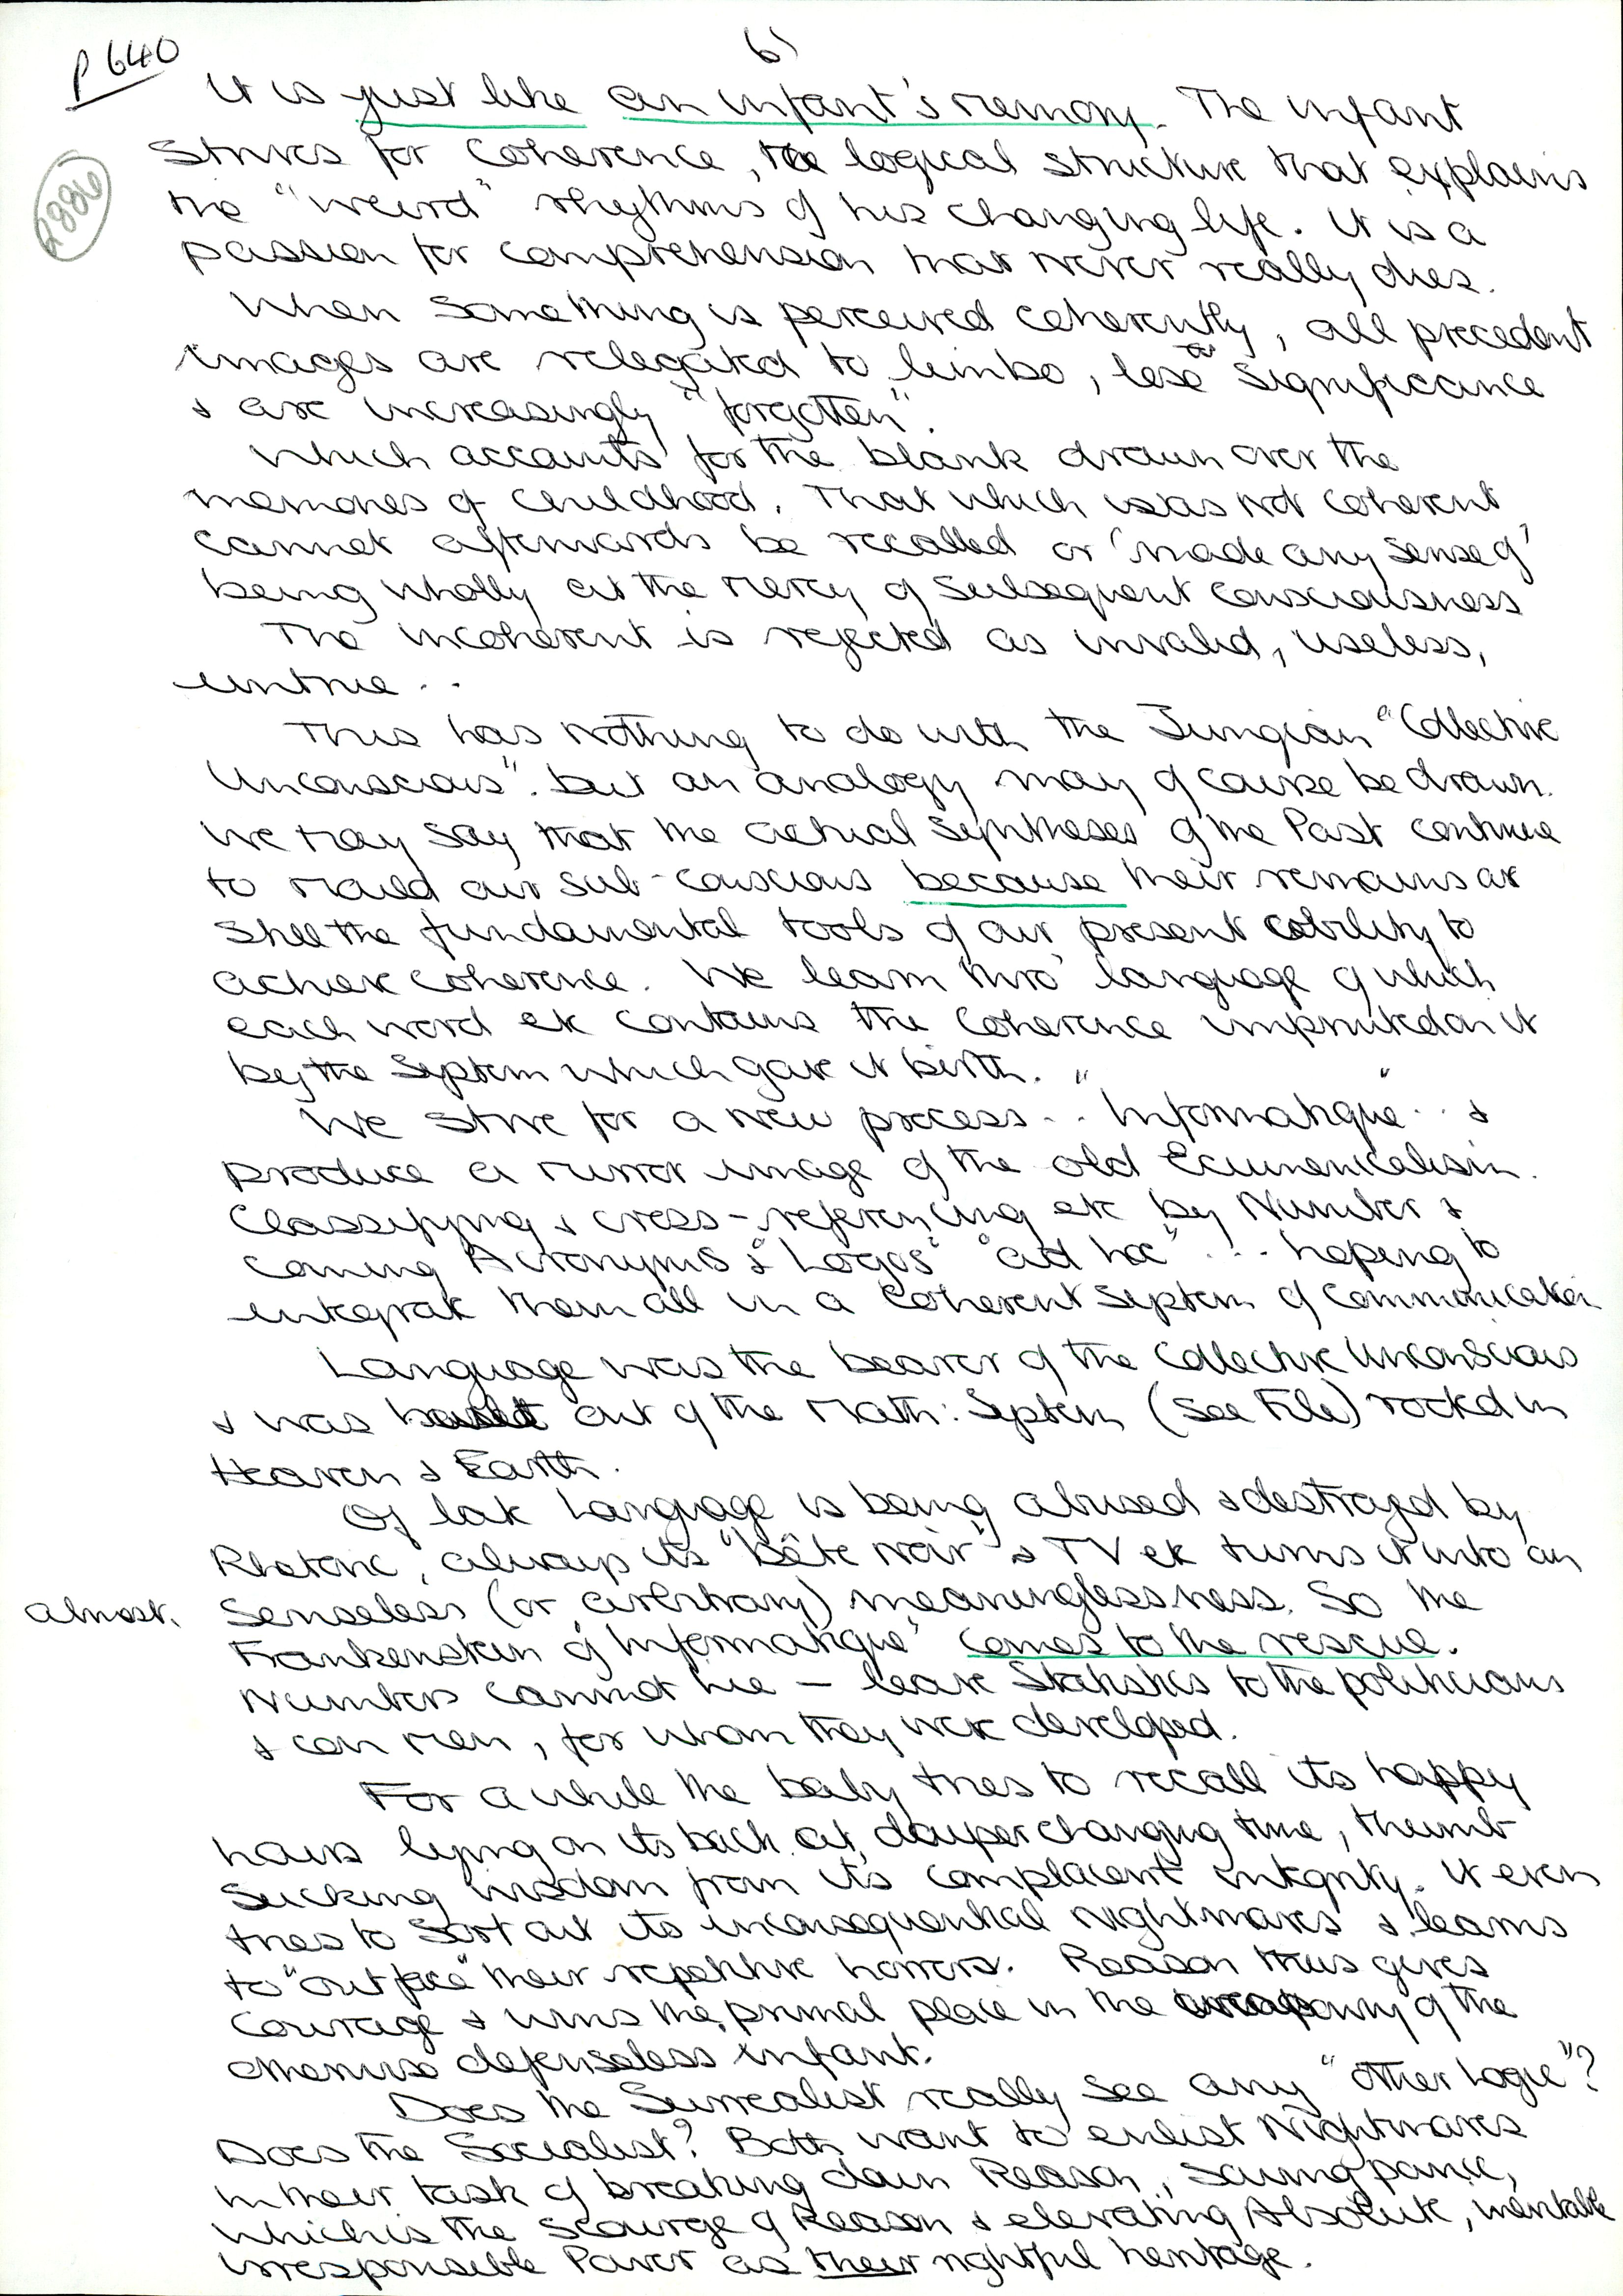 p 640
6)
It is just like an infant's memory. The infant
strives for coherence, the logical structure that explains
the "weird" rhythms of his changing life. It is a
passion for comprehension that never really dies.
2886
When something is perceived coherently, all precedent
images are relegated to limbo, lose significance
& are increasingly "forgotten".
Which accounts for the blank drawn over the
memories of childhood. That which was not coherent
cannot afterwards be recalled or 'made any sense of'
being wholly at the mercy of subsequent consciousness
The incoherent is rejected as invalid, useless,
untrue..
This has nothing to do with the Jungian "Collective
Unconscious". but an analogy may of course be drawn.
We may say that the actual syntheses of the Past continue
to mould our sub-conscious because their remains are
still the fundamental tools of our present ability to
achieve coherence. We learn thro' language of which
each word etc contains the coherence imprinted on it
by the System which gave it birth.
We strive for a new process.. "Informatique".. &
produce a mirror image of the old Ecumenicalism.
Classifying & cross-referencing etc by Number &
coining Acronyms & "Logos" "ad hoc"... hoping to
integrate them all in a coherent System of Communication
Language was the bearer of the Collective Unconscious
& was built out of the Math: System (see File) rooted in
Heaven & Earth.
Of late Language is being abused & destroyed by
Rhetoric, always its "bête noir" & TV etc turns it into an
almost. senseless (or arbitrary) meaninglessness. So the
Frankenstein of Informatique" comes to the rescue.
Numbers cannot lie – leave Statistics to the politicians
& con men, for whom they were developed.
For a while the baby tries to recall its happy
hours lying on its back at diaper changing time, thumb
sucking wisdom from its complacent integrity. It even
tries to sort out its inconsequential nightmares & learns
to "outface" their repetitive horrors. Reason thus gives
courage & wins the primal place in the of the
otherwise defenseless infant.
Does the Surrealist really see any "other logic"?
Does the Socialist? Both want to enlist Nightmares
in their task of breaking down Reason, sowing panic,
which is the scourge of Reason & elevating Absolute, inevitable
irresponsible Power as their rightful heritage.